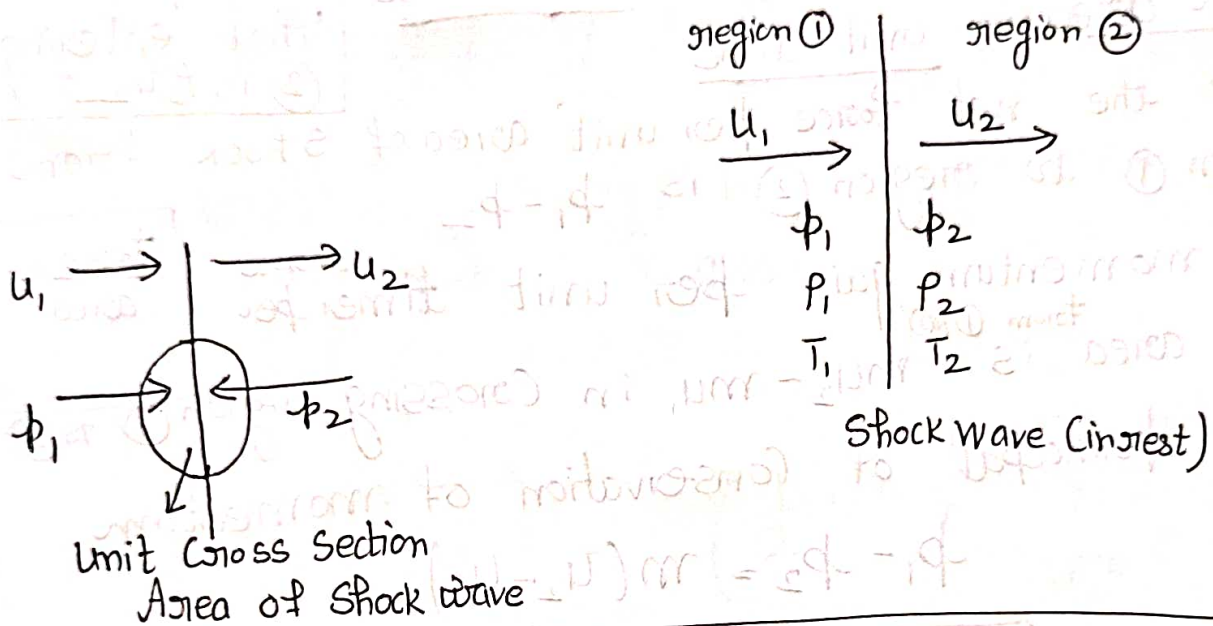 region ① region ②
u₁ u₂
p₁ p₂
ρ₁ ρ₂
T₁ T₂
Shock wave (in rest)
u₁ u₂
p₁ p₂
Unit Cross Section
Area of Shock wave